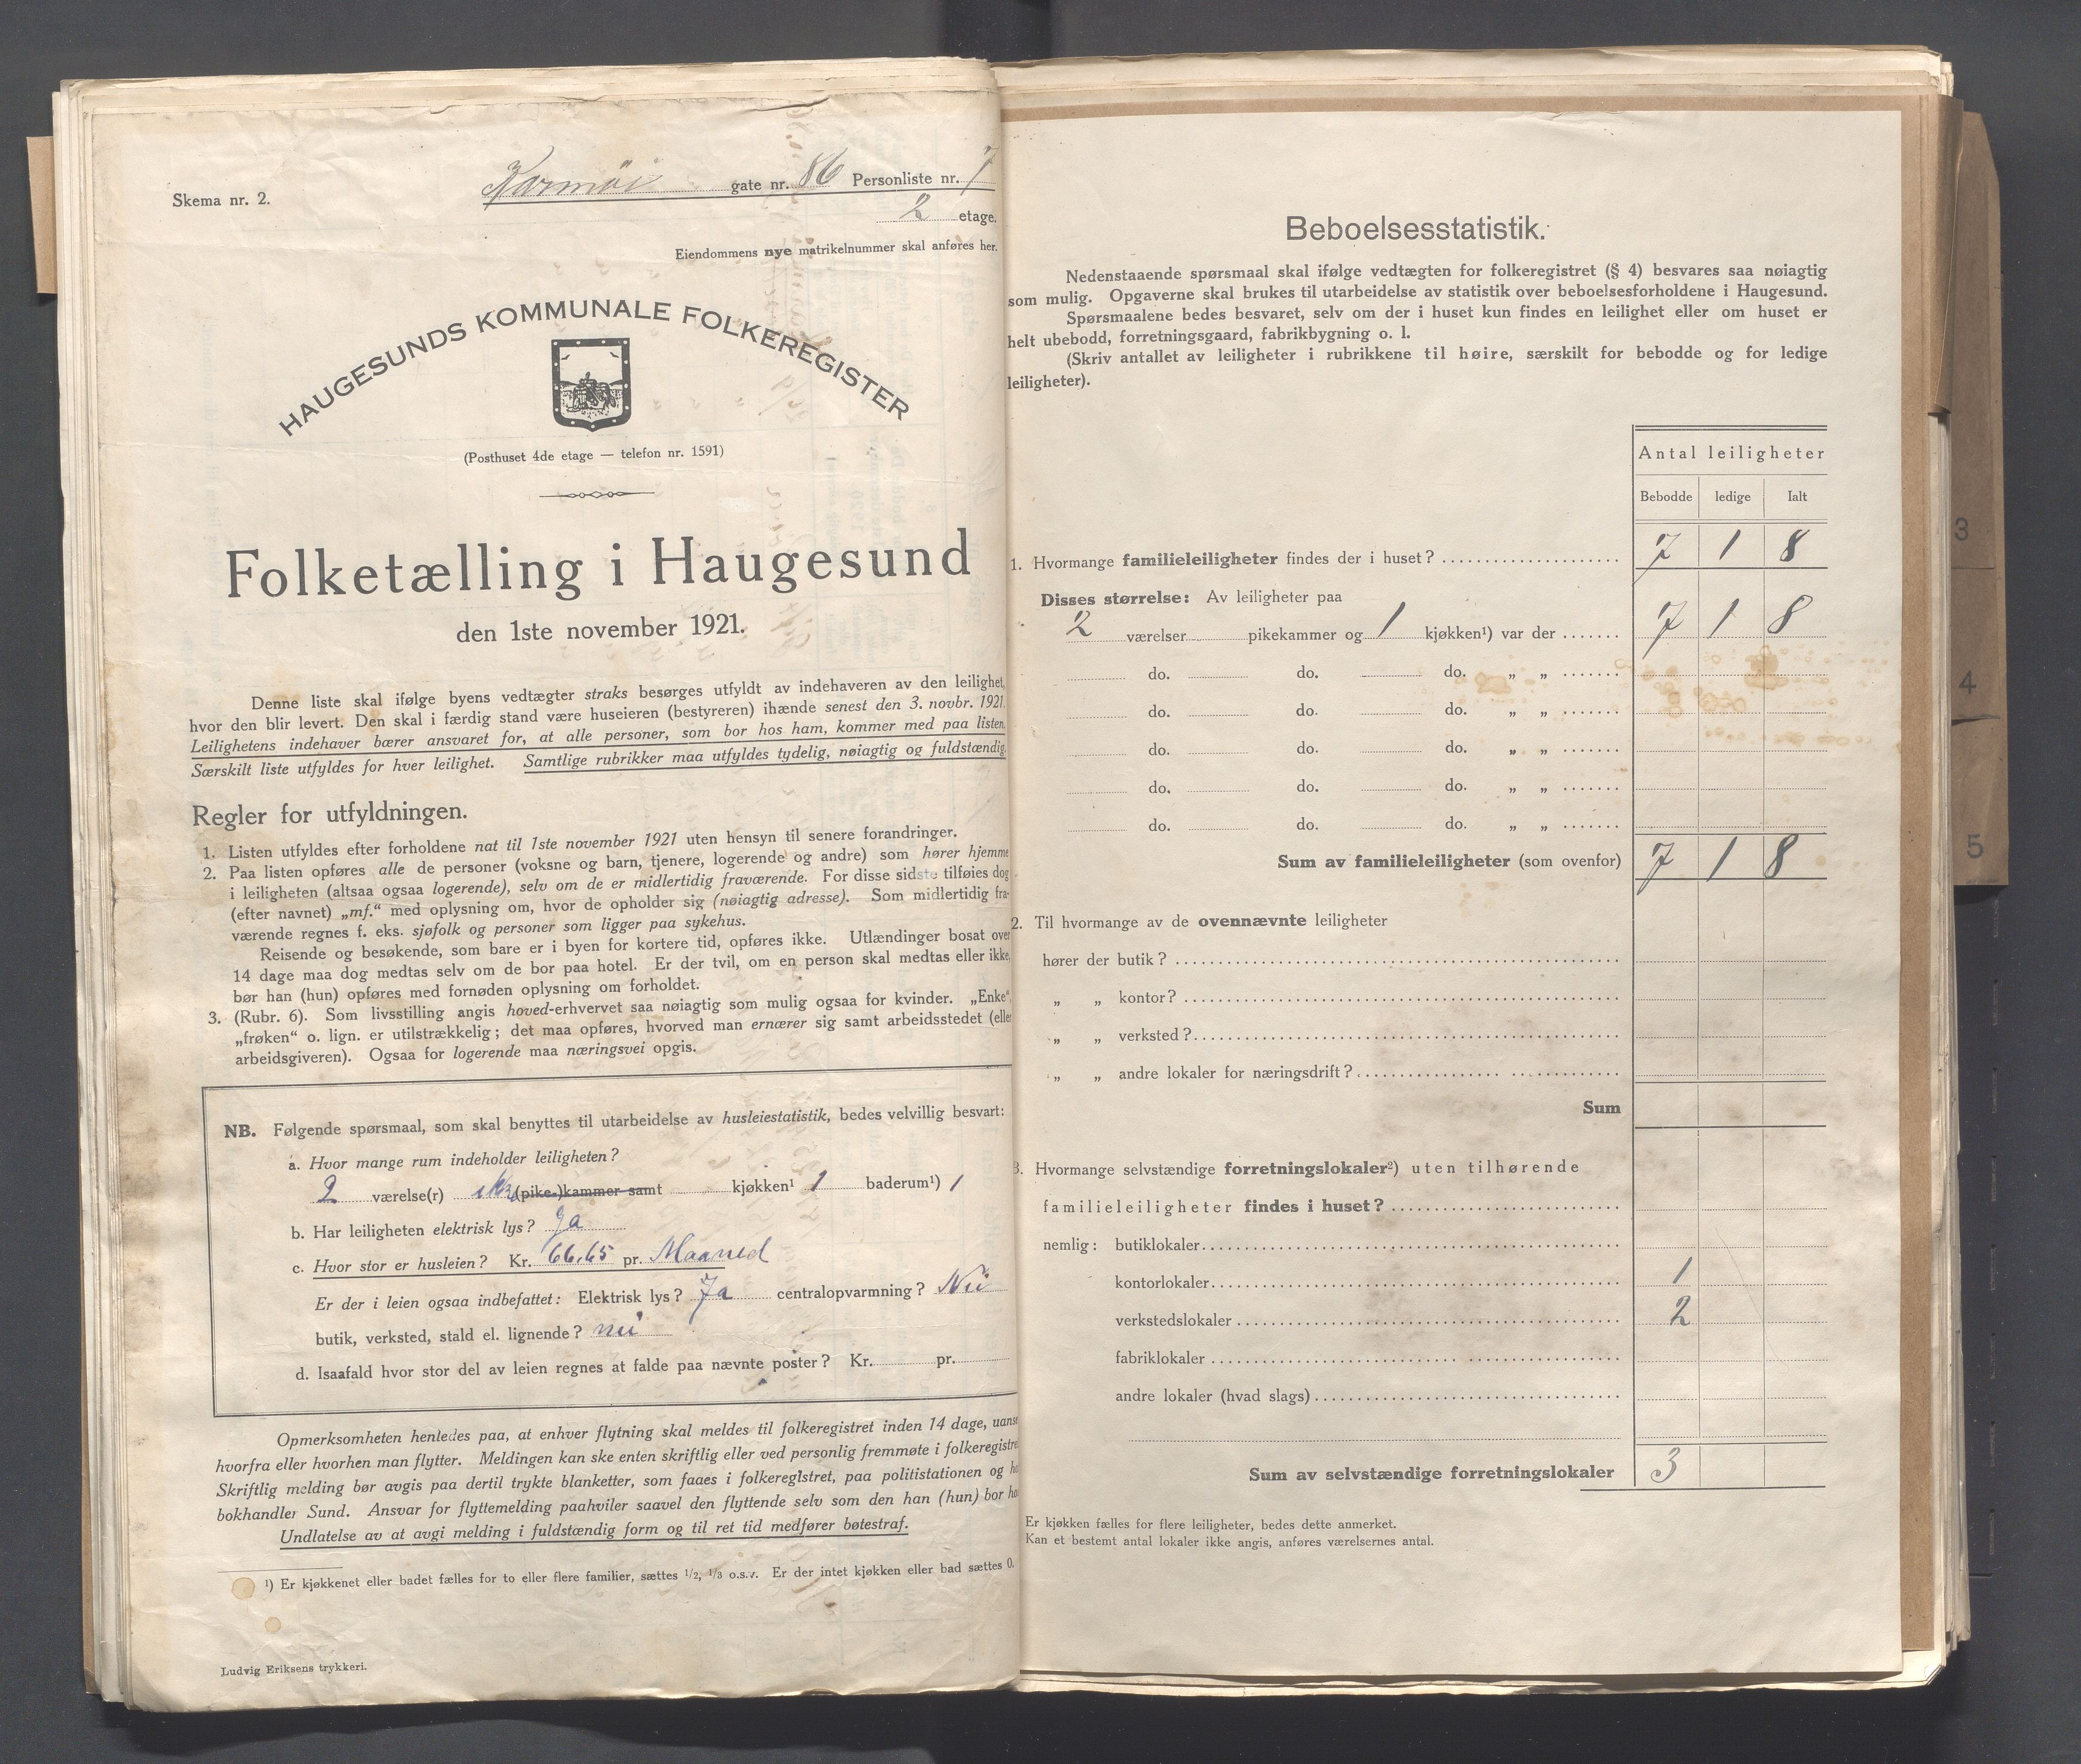 Skema nr. 2.
Karmøi gate nr. 86 Personliste nr. 7
2 etage.
Eiendommens nye matrikelnummer skal anføres her.
HAUGESUNDS KOMMUNALE FOLKEREGISTER
(Posthuset 4de etage — telefon nr. 1591)
Folketælling i Haugesund
den 1ste november 1921.
Denne liste skal ifølge byens vedtægter straks besørges utfyldt av indehaveren av den leilighet,
hvor den blir levert. Den skal i færdig stand være huseieren (bestyreren) ihænde senest den 3. novbr. 1921.
Leilighetens indehaver bærer ansvaret for, at alle personer, som bor hos ham, kommer med paa listen.
Særskilt liste utfyldes for hver leilighet. Samtlige rubrikker maa utfyldes tydelig, nøiagtig og fuldstændig.
Regler for utfyldningen.
1. Listen utfyldes efter forholdene nat til 1ste november 1921 uten hensyn til senere forandringer.
2. Paa listen opføres alle de personer (voksne og barn, tjenere, logerende og andre) som hører hjemme
i leiligheten (altsaa ogsaa logerende), selv om de er midlertidig fraværende. For disse sidste tilføies dog
(efter navnet) „mf.“ med oplysning om, hvor de opholder sig (nøiagtig adresse). Som midlertidig fra-
værende regnes f. eks. sjøfolk og personer som ligger paa sykehus.
Reisende og besøkende, som bare er i byen for kortere tid, opføres ikke. Utlændinger bosat over
14 dage maa dog medtas selv om de bor paa hotel. Er der tvil, om en person skal medtas eller ikke,
bør han (hun) opføres med fornøden oplysning om forholdet.
3. (Rubr. 6). Som livsstilling angis hoved-erhvervet saa nøiagtig som mulig ogsaa for kvinder. „Enke“,
„frøken“ o. lign. er utilstrækkelig; det maa opføres, hvorved man ernærer sig samt arbeidsstedet (eller
arbeidsgiveren). Ogsaa for logerende maa næringsvei opgis.
NB. Følgende spørsmaal, som skal benyttes til utarbeidelse av husleiestatistik, bedes velvillig besvart:
a. Hvor mange rum indeholder leiligheten?
2 værelse(r) (pike-)kammer samt kjøkken¹ 1 baderum¹) 1
b. Har leiligheten elektrisk lys? Ja
c. Hvor stor er husleien? Kr. 66.65 pr. Maaned
Er der i leien ogsaa indbefattet: Elektrisk lys? Ja centralopvarmning? Nei
butik, verksted, stald el. lignende? nei
d. Isaafald hvor stor del av leien regnes at falde paa nævnte poster? Kr. pr.
Opmerksomheten henledes paa, at enhver flytning skal meldes til folkeregistret inden 14 dage, uanse
hvorfra eller hvorhen man flytter. Meldingen kan ske enten skriftlig eller ved personlig fremmøte i folkeregistre
Skriftlig melding bør avgis paa dertil trykte blanketter, som faaes i folkeregistret, paa politistationen og ho
bokhandler Sund. Ansvar for flyttemelding paahviler saavel den flyttende selv som den han (hun) bor ho
Undlatelse av at avgi melding i fuldstændig form og til ret tid medfører bøtestraf.
¹) Er kjøkkenet eller badet fælles for to eller flere familier, sættes ¹/₂, ¹/₃ o.s.v. Er der intet kjøkken eller bad sættes 0.
Ludvig Eriksens trykkeri.
Beboelsesstatistik.
Nedenstaaende spørsmaal skal ifølge vedtægten for folkeregistret (§ 4) besvares saa nøiagtig
som mulig. Opgaverne skal brukes til utarbeidelse av statistik over beboelsesforholdene i Haugesund.
Spørsmaalene bedes besvaret, selv om der i huset kun findes en leilighet eller om huset er
helt ubebodd, forretningsgaard, fabrikbygning o. l.
(Skriv antallet av leiligheter i rubrikkene til høire, særskilt for bebodde og for ledige
leiligheter).
Antal leiligheter
Bebodde ledige Ialt
1. Hvormange familieleiligheter findes der i huset? 7 1 8
Disses størrelse: Av leiligheter paa
2 værelser pikekammer og 1 kjøkken¹) var der 7 1 8
do. do. do. „ „
do. do. do. „ „
do. do. do. „ „
do. do. do. „ „
do. do. do. „ „
Sum av familieleiligheter (som ovenfor) 7 1 8
2. Til hvormange av de ovennævnte leiligheter
hører der butik?
„ „ kontor?
„ „ verksted?
„ „ andre lokaler for næringsdrift?
Sum
3. Hvormange selvstændige forretningslokaler²) uten tilhørende
familieleiligheter findes i huset?
nemlig: butiklokaler
kontorlokaler 1
verkstedslokaler 2
fabriklokaler
andre lokaler (hvad slags)
Sum av selvstændige forretningslokaler 3
Er kjøkken fælles for flere leiligheter, bedes dette anmerket.
Kan et bestemt antal lokaler ikke angis, anføres værelsernes antal.
3
4
5